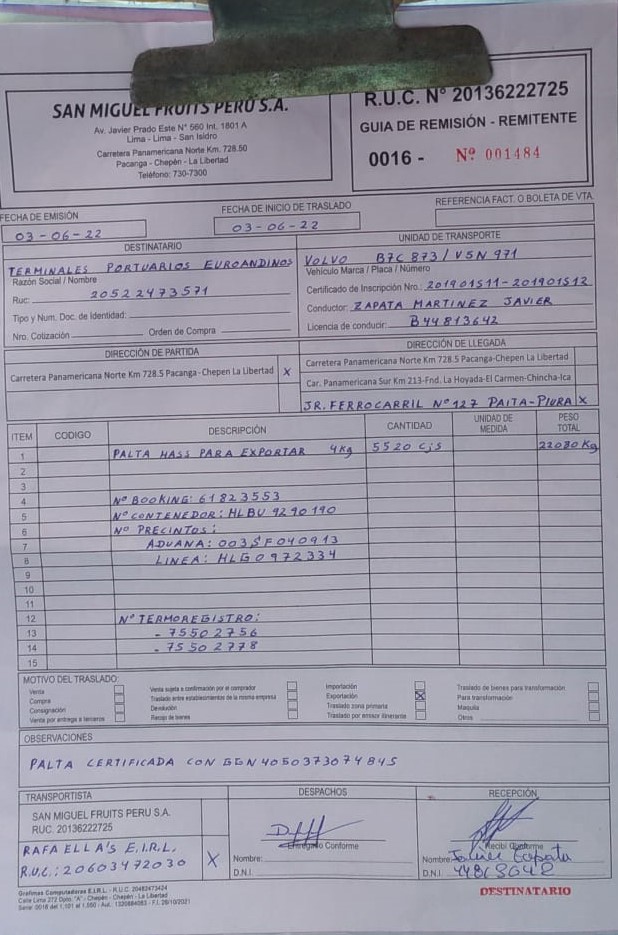 SAN MIGUEL FRUITS PERU S.A.
Av. Javier Prado Este N° 560 Int. 1801 A
Lima - Lima - San Isidro
Carretera Panamericana Norte Km. 728.50
Pacanga - Chepén - La Libertad
Teléfono: 730-7300
R.U.C. N° 20136222725
GUIA DE REMISIÓN - REMITENTE
0016 - Nº 001484
FECHA DE EMISIÓN
03-06-22
FECHA DE INICIO DE TRASLADO
03-06-22
REFERENCIA FACT. O BOLETA DE VTA.
DESTINATARIO
TERMINALES PORTUARIOS EUROANDINOS
Razón Social / Nombre
Ruc: 20522473571
Tipo y Num. Doc. de Identidad:
Nro. Cotización: Orden de Compra:
UNIDAD DE TRANSPORTE
VOLVO B7C 873 / V5N 971
Vehículo Marca / Placa / Número
Certificado de Inscripción Nro.: 201901511-201901512
Conductor: ZAPATA MARTINEZ JAVIER
Licencia de conducir: B44813642
DIRECCIÓN DE PARTIDA
Carretera Panamericana Norte Km 728.5 Pacanga-Chepen La Libertad X
DIRECCIÓN DE LLEGADA
Carretera Panamericana Norte Km 728.5 Pacanga-Chepen La Libertad
Car. Panamericana Sur Km 213-Fnd. La Hoyada-El Carmen-Chincha-Ica
JR. FERROCARRIL Nº 127 PAITA-PIURA X
ITEM CODIGO DESCRIPCIÓN CANTIDAD UNIDAD DE MEDIDA PESO TOTAL
1 PALTA HASS PARA EXPORTAR 4Kg 5520 Cjs 22080 Kg
2
3
4 Nº BOOKING: 61823553
5 Nº CONTENEDOR: HLBU 9290190
6 Nº PRECINTOS:
7 ADUANA: 003SF040913
8 LINEA: HLG0972334
9
10
11
12 Nº TERMOREGISTRO:
13 - 75502756
14 - 75502778
15
MOTIVO DEL TRASLADO:
Venta
Compra
Consignación
Venta por entrega a terceros
Venta sujeta a confirmación por el comprador
Traslado entre establecimientos de la misma empresa
Devolución
Recojo de bienes
Importación
Exportación X
Traslado zona primaria
Traslado por emisor itinerante
Traslado de bienes para transformación
Para transformación
Maquila
Otros
OBSERVACIONES
PALTA CERTIFICADA CON GGN 4050373074845
TRANSPORTISTA
SAN MIGUEL FRUITS PERU S.A.
RUC. 20136222725
RAFAELLA'S E.I.R.L.
R.U.C.: 20603472030 X
DESPACHOS
Entregado Conforme
Nombre:
D.N.I.
RECEPCIÓN
Recibi Conforme
Nombre: Javier Zapata
D.N.I. 44813642
Grafimax Computadores E.I.R.L. - R.U.C. 20482473424
Calle Lima 272 Dpto. "A" - Chepén - Chepén - La Libertad
DESTINATARIO